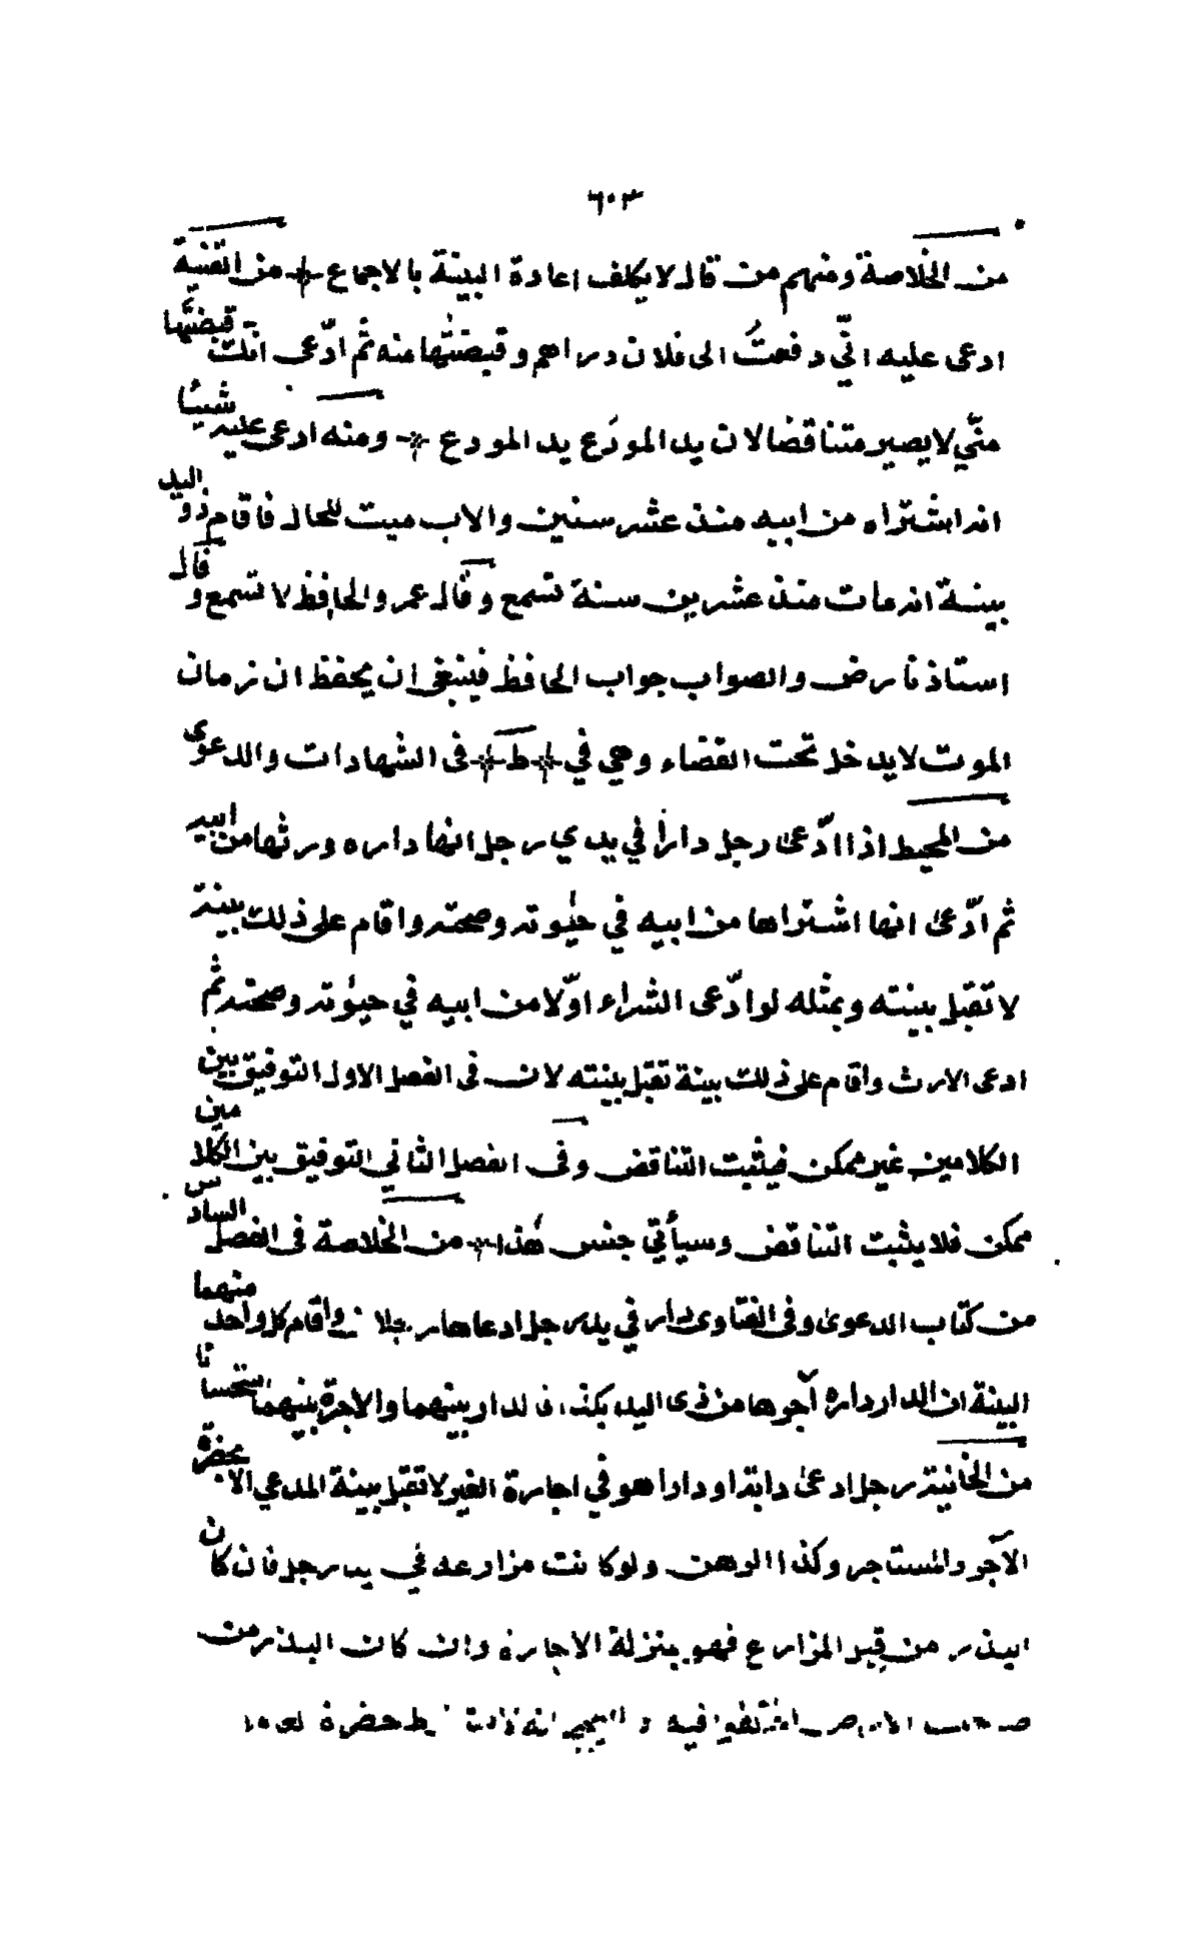 ٦٠٣
من الخلاصة ومنهم من قال لا يكلف اعادة البينة بالاجماع من القنية
ادعى عليه انّي دفعتُ الى فلان دراهم وقبضتُها منه ثم ادّعى انك قبضتَها
منّي لا يصير متناقضا لان يد المودَع يد المودع ومنه ادعى عليه شيئا
انه اشتراه من ابيه منذ عشر سنين والاب ميت للحال فاقام ذو اليد
بينة انه مات منذ عشرين سنة تسمع وقال عمر والحافظ لا تسمع وقال
استاذنا رض والصواب جواب الحافظ فينبغي ان يحفظ ان زمان
الموت لا يدخل تحت القضاء وهي في ط فى الشهادات والدعوى
من المحيط اذا ادّعى رجل دارا في يدي رجل انها داره ورثها من ابيه
ثم ادّعى انها اشتراها من ابيه في حيوته وصحته واقام على ذلك بينة
لا تقبل بينته وبمثله لو ادّعى الشراء اوّلا من ابيه في حيوته وصحته ثم
ادعى الارث واقام على ذلك بينة تقبل بينته لان فى الفصل الاول التوفيق بين
الكلامين غير ممكن فيثبت التناقض وفى الفصل الثاني التوفيق بين الكلامين
ممكن فلا يثبت التناقض وسيأتي جنس هذا من الخلاصة فى الفصل السادس
من كتاب الدعوى وفى الفتاوى دار في يد رجل ادعاها رجلان واقام كل واحد منهما
البينة ان الدار داره آجرها من ذى اليد بكذا فالدار بينهما والاجرة بينهما استحسانا
من الخانية رجل ادعى دابة او دارا هو في اجارة الغير لا تقبل بينة المدعي الا بحضرة
الآجر والمستاجر وكذا الرهن ولو كانت مزارعة في يد رجل فان كان
البذر من قبل المزارع فهو بمنزلة الاجارة وان كان البذر من
صاحب الارض اختلفوا فيه و انه حضرة